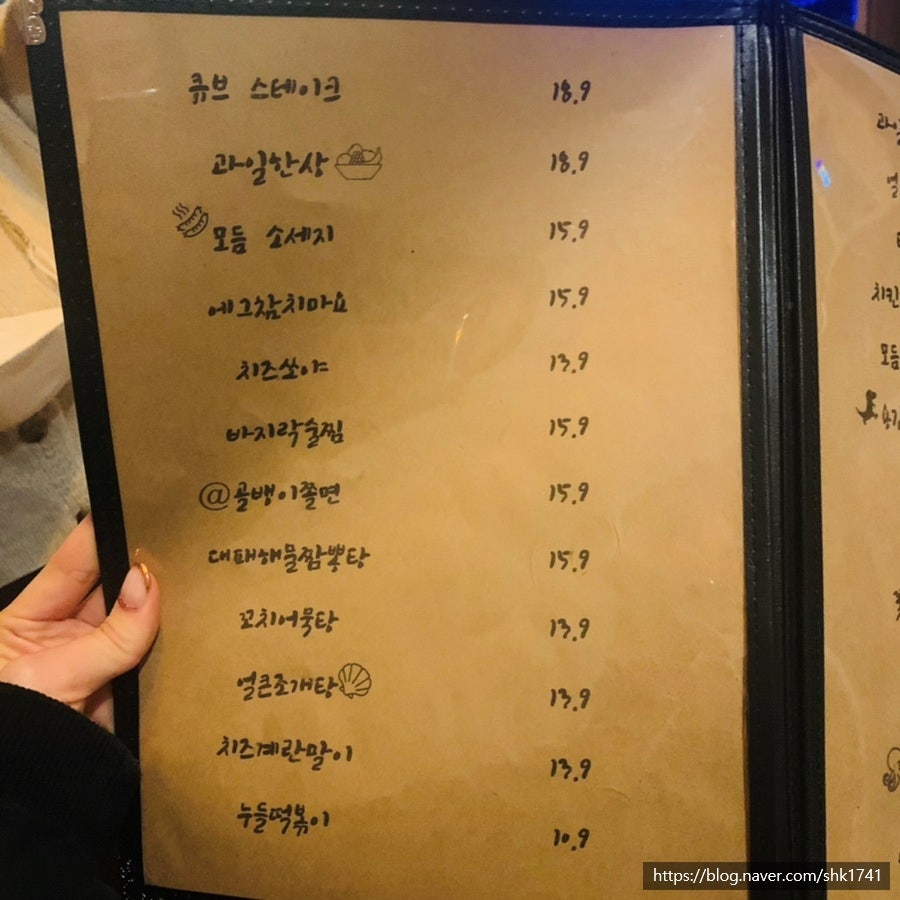 큐브 스테이크 18.9
과일한상 18.9
모듬 소세지 15.9
에그참치마요 15.9
치즈쏘야 13.9
바지락술찜 15.9
@골뱅이쫄면 15.9
대패해물짬뽕탕 15.9
꼬치어묵탕 13.9
얼큰조개탕 13.9
치즈계란말이 13.9
누들떡볶이 10.9
치킨
모듬
https://blog.naver.com/shk1741